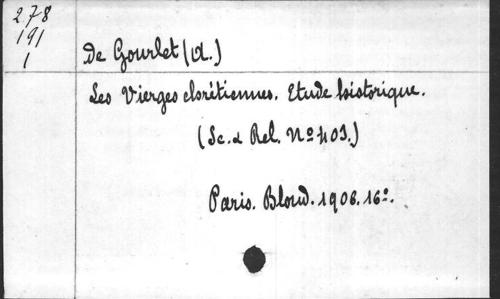 278
191
1
De Gourlet (A.)
Les Vierges chrétiennes. Etude historique.
(Sc. & Rel. Nº 403.)
Paris. Bloud. 1906. 16º.